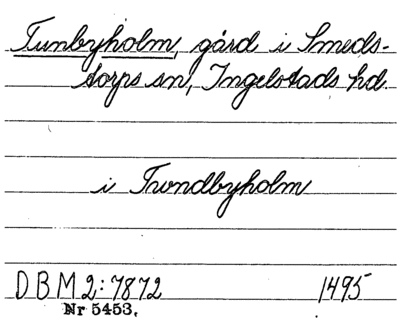 Tunbyholm, gård i Smeds-
torps sn, Ingelstads hd.
i Trondbyholm
DBM 2:7872 1495
Nr 5453.